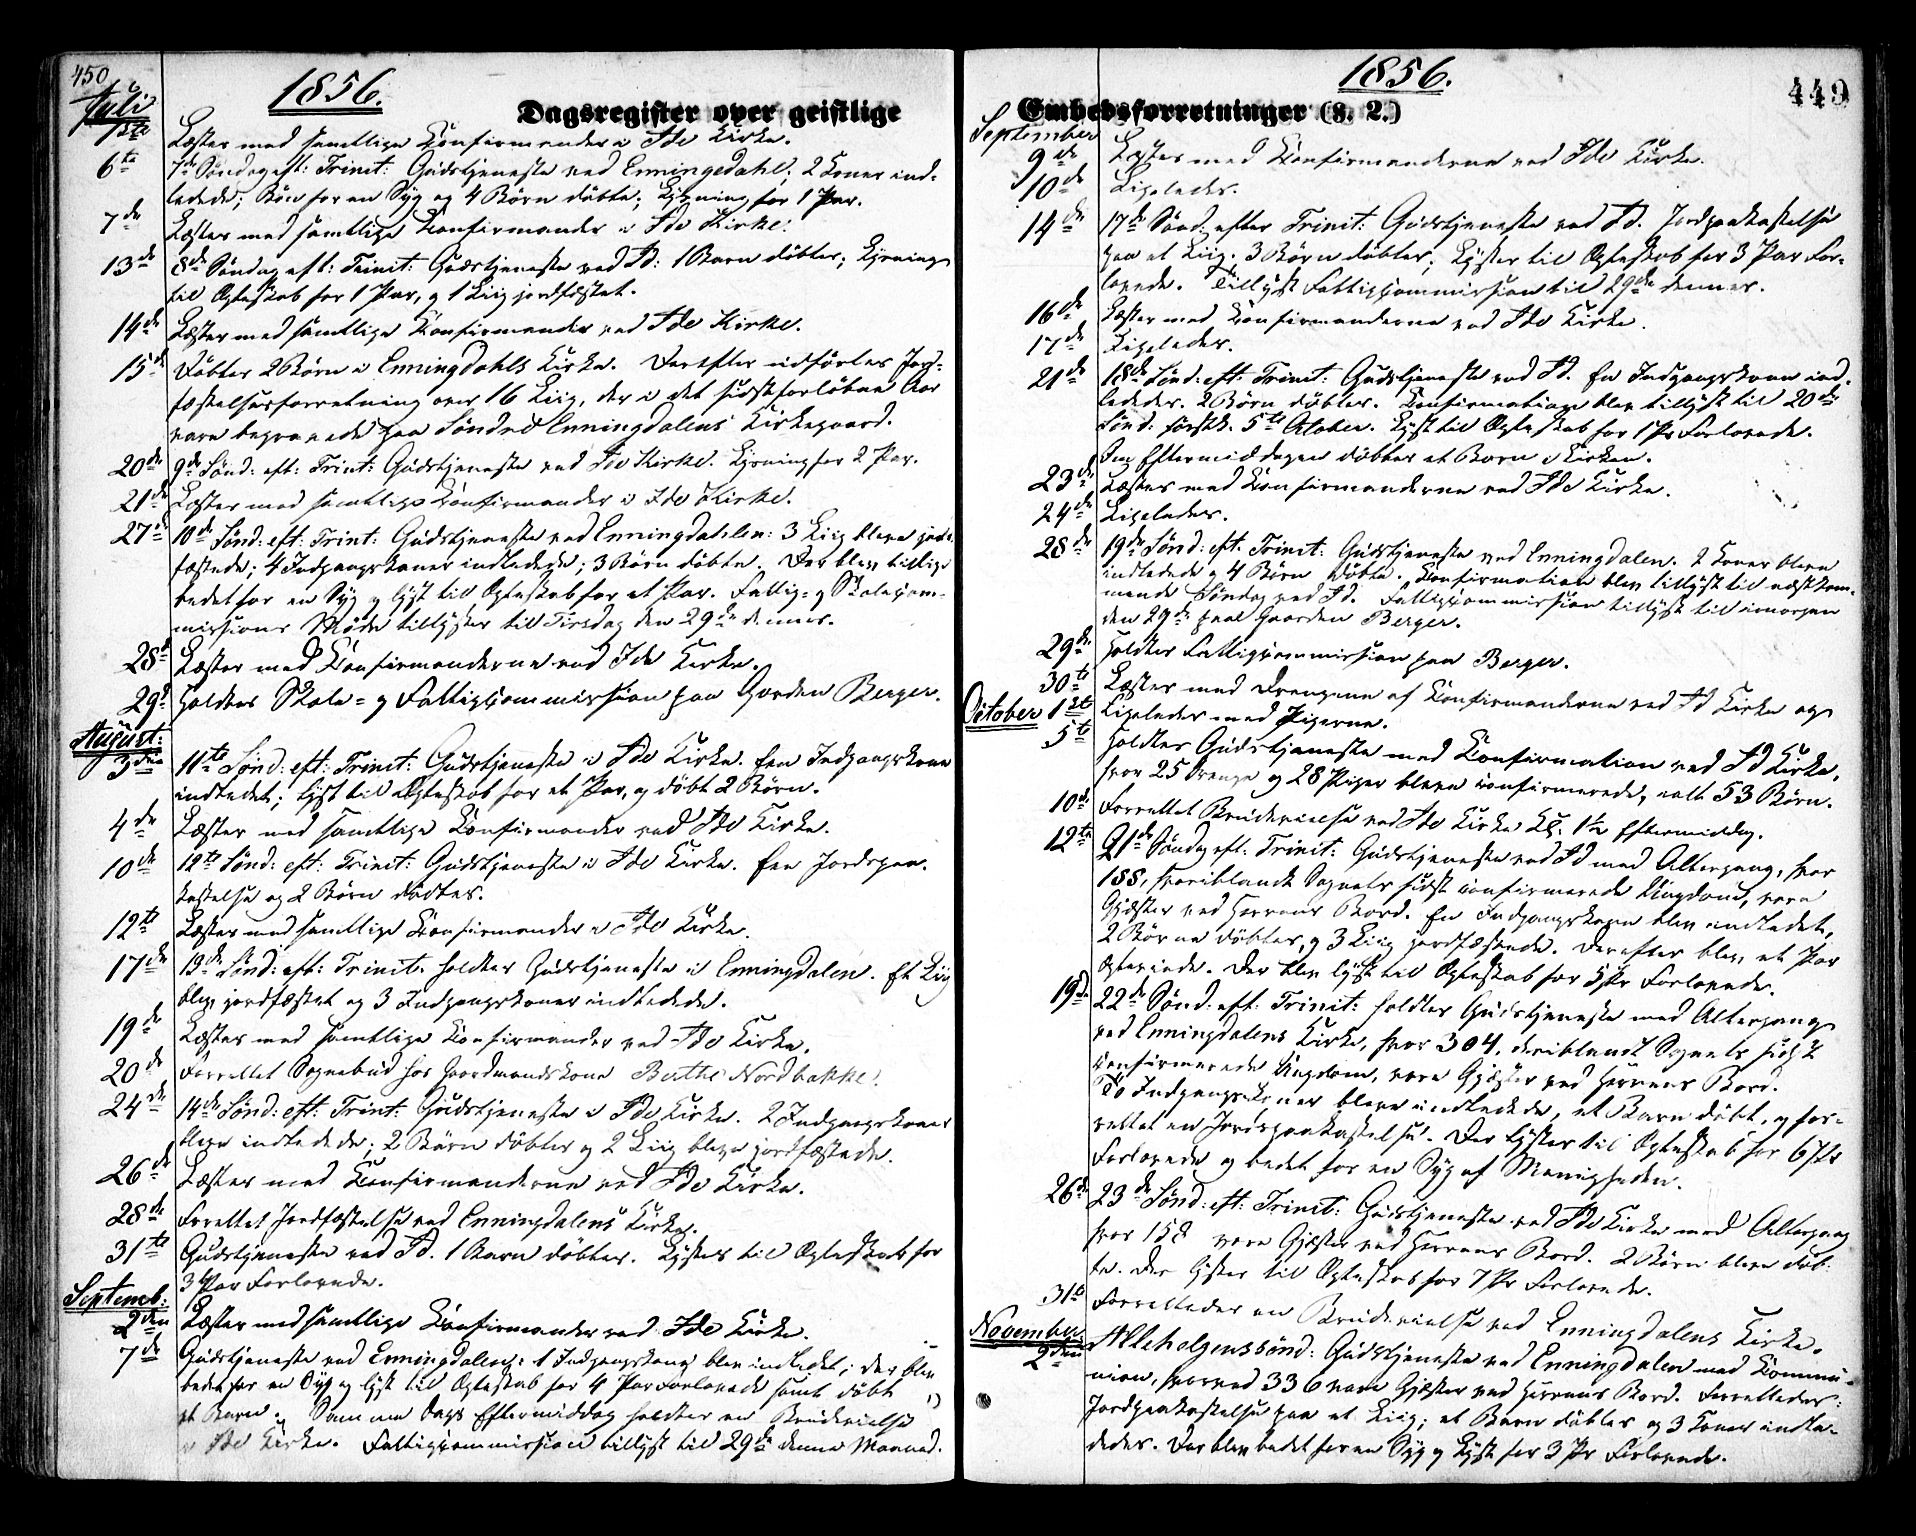 450
1856.
Dagsregister over geistlige
Juli
1ste Læstes med samtlige Confirmander i Ide Kirke.
6te 7de Søndag eft: Trinit: Gudstjeneste ved Enningdahl; 2 Koner ind-
ledede; Bøn for en Syg og 4 Børn døbte; Lysning for 1 Par.
7de Læstes med samtlige Confirmander i Ide Kirke.
13de 8de Søndag eft: Trinit: Gudstjeneste ved Id: 1 Barn døbtes; Lysning
til Ægteskab for 1 Par, og 1 Liig jordfæstet.
14de Læstes med samtlige Confirmander ved Ide Kirke.
15de Døbtes 2 Børn i Enningdahls Kirke. Derefter udførtes Jord-
fæstelsesforretning over 16 Liig, der i det sidstforløbne Aar
vare begravede paa Søndre Enningdalens Kirkegaard.
20de 9de Sønd: eft: Trint: Gudstjeneste ved Ide Kirke. Lysning for 2 Par.
21de Læstes med samtlige Confirmander i Ide Kirke.
27de 10de Sønd: eft: Trint: Gudstjeneste ved Enningdahlen: 3 Liig bleve jord-
fæstede; 4 Indgangskoner indledede; 3 Børn døbte. Der blev tillige
bedet for en Syg og lyst til Ægteskab for et Par. Fattig- og Skolecom-
missions Møde tillystes til Tirsdag den 29de dennes.
28de Læstes med Confirmanderne ved Ide Kirke.
29de Holdtes Skole- og Fattigcommission paa Gaarden Berger.
August:
3die 11te Sønd: eft: Trinit: Gudstjeneste i Ide Kirke. Een Indgangskone
indledet; lyst til Ægteskab for et Par, og døbt 2 Børn.
4de Læstes med samtlige Confirmander ved Ide Kirke.
10de 12te Sønd: eft: Trinit: Gudstjeneste i Ide Kirke. Een Jordspaa-
kastelse og 2 Børn døbtes.
12te Læstes med samtlige Confirmander i Ide Kirke.
17de 13de Sønd: eft: Trinit. holdtes Gudstjeneste i Enningdalen. Et Liig
blev jordfæstet og 3 Indgangskoner indledede.
19de Læstes med samtlige Confirmander ved Ide Kirke.
20de Forrettet Sognebud hos Gaardmandskone Berthe Nordbakke.
24de 14de Sønd: eft: Trint: Gudstjeneste i Ide Kirke. 2 Indgangskoner
bleve indledede; 2 Børn døbtes og 2 Liig bleve jordfæstede.
26de Læstes med Confirmanderne ved Ide Kirke.
28de Forrettet Jordfæstelse ved Enningdalens Kirke.
31te Gudstjeneste ved Id. 1 Barn døbtes. Lystes til Ægteskab for
3 Par Forlovede.
Septemb:
2den Læstes med samtlige Confirmander ved Ide Kirke.
7de Gudstjeneste ved Enningdalen: 1 Indgangskone blev indledet; der blev
bedet for en Syg og lyst til Ægteskab for 4 Par Forlovede samt døbt
et Barn. Samme Dags Eftermiddag holdtes en Brudevielse
i Ide Kirke. Fattigcommission tillyst til 29de denne Maaned.
1856.
449
Embedsforretninger (§. 2.)
September
9de Læstes med Confirmanderne ved Ide Kirke.
10de Ligeledes.
14de 17de Sønd: efter Trinit: Gudstjeneste ved Id. Jordpaakastelse
paa et Liig. 3 Børn døbtes; Lystes til Ægteskab for 3 Par For-
lovede. Tillyst Fattigcommission til 29de dennes.
16de Læstes med Confirmanderne ved Ide Kirke.
17de Ligeledes.
21de 18de Sønd: eft: Trinit: Gudstjeneste ved Id. En Indgangskone ind-
lededes. 2 Børn døbtes. Confirmation blev tillyst til 20de
Sønd: førstk. 5te October. Lyst til Ægteskab for 1 Pr Forlovede.
Om Eftermiddagen døbtes et Barn i Kirken.
23de Læstes med Confirmanderne ved Ide Kirke.
24de Ligeledes.
28de 19de Sønd: eft. Trinit: Gudstjeneste ved Enningdalen. 2 Koner bleve
indledede og 4 Børn døbte. Confirmation blev tillyst til næstkom-
mende Søndag ved Id. Fattigcommission tillyst til imorgen
den 29de paa Gaarden Berger.
29de Holdtes Fattigcommission paa Berger.
30te Læstes med Drengene af Confirmanderne ved Id Kirke og
October 1ste Ligeledes med Pigerne.
5te Holdtes Gudstjeneste med Confirmation ved Id Kirke,
hvor 25 Drenge og 28 Piger bleve confirmerede, ialt 53 Børn.
10de Forrettet Brudevielse ved Ide Kirke Kl. 1½ Eftermiddag.
12te 21de Søndag eft: Trinit: Gudstjeneste ved Id med Altergang, hvor
188, hvoriblandt Sognets sidst confirmerede Ungdom, vare
Gjæster ved Herrens Bord. En Indgangskone blev indledet,
2 Børn døbtes, og 3 Liig jordfæstede. Derefter blev et Par
Ægteviede. Der blev lyst til Ægteskab for 5 Pr Forlovede.
19de 22de Sønd: eft: Trinit: holdtes Gudstjeneste med Altergang
ved Enningdalens Kirke, hvor 304, deriblandt Sognets sidst
confirmerede Ungdom, vare Gjæster ved Herrens Bord.
To Indgangskoner bleve indledede, et Barn døbt, og for-
rettet en Jordspaakastelse. Der lystes til Ægteskab for 6 Pr
Forlovede og bedet for en Syg af Menigheden.
26de 23de Sønd: eft: Trinit: Gudstjeneste ved Ide Kirke med Altergang
hvor 158 vare Gjæster ved Herrens Bord. 2 Børn bleve døb-
te. Der lystes til Ægteskab for 7 Pr Forlovede.
31te Forrettedes en Brudevielse ved Enningdalens Kirke.
November
2den Allehelgenssønd: Gudstjeneste ved Enningdalen med Commu-
nion, hvorved 336 vare Gjæster ved Herrens Bord. Forrettedes
Jordpaakastelse paa et Liig; et Barn døbtes og 3 Koner indle-
dedes. Der blev bedet for en Syg og Lyst for 3 Pr Forlovede.